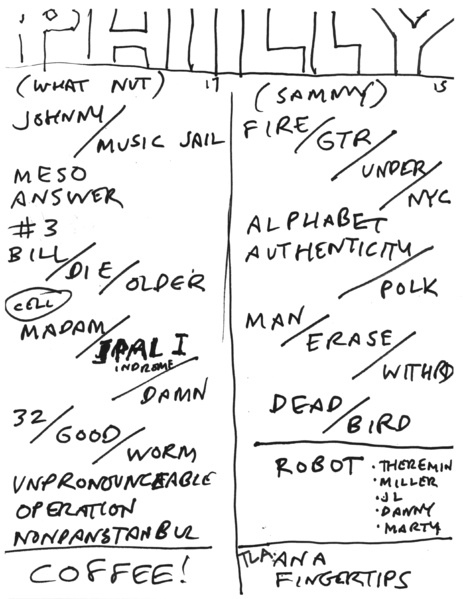 PHILLY
(WHAT NUT) 17
JOHNNY/
MUSIC JAIL
MESO
ANSWER
#3
BILL/
DIE/OLDER
CELL
MADAM/
PAL I
INDROME/
DAMN
32/GOOD/
WORM
UNPRONOUNCEABLE
OPERATION
NONPANSTANBUL
COFFEE!
(SAMMY) 15
FIRE/GTR/
UNDER/
NYC
ALPHABET
AUTHENTICITY/
POLK
MAN/
ERASE/
WITHRD
DEAD/
BIRD
ROBOT
·THEREMIN
·MILLER
·JL
·DANNY
·MARTY
TLA: ANA
FINGERTIPS